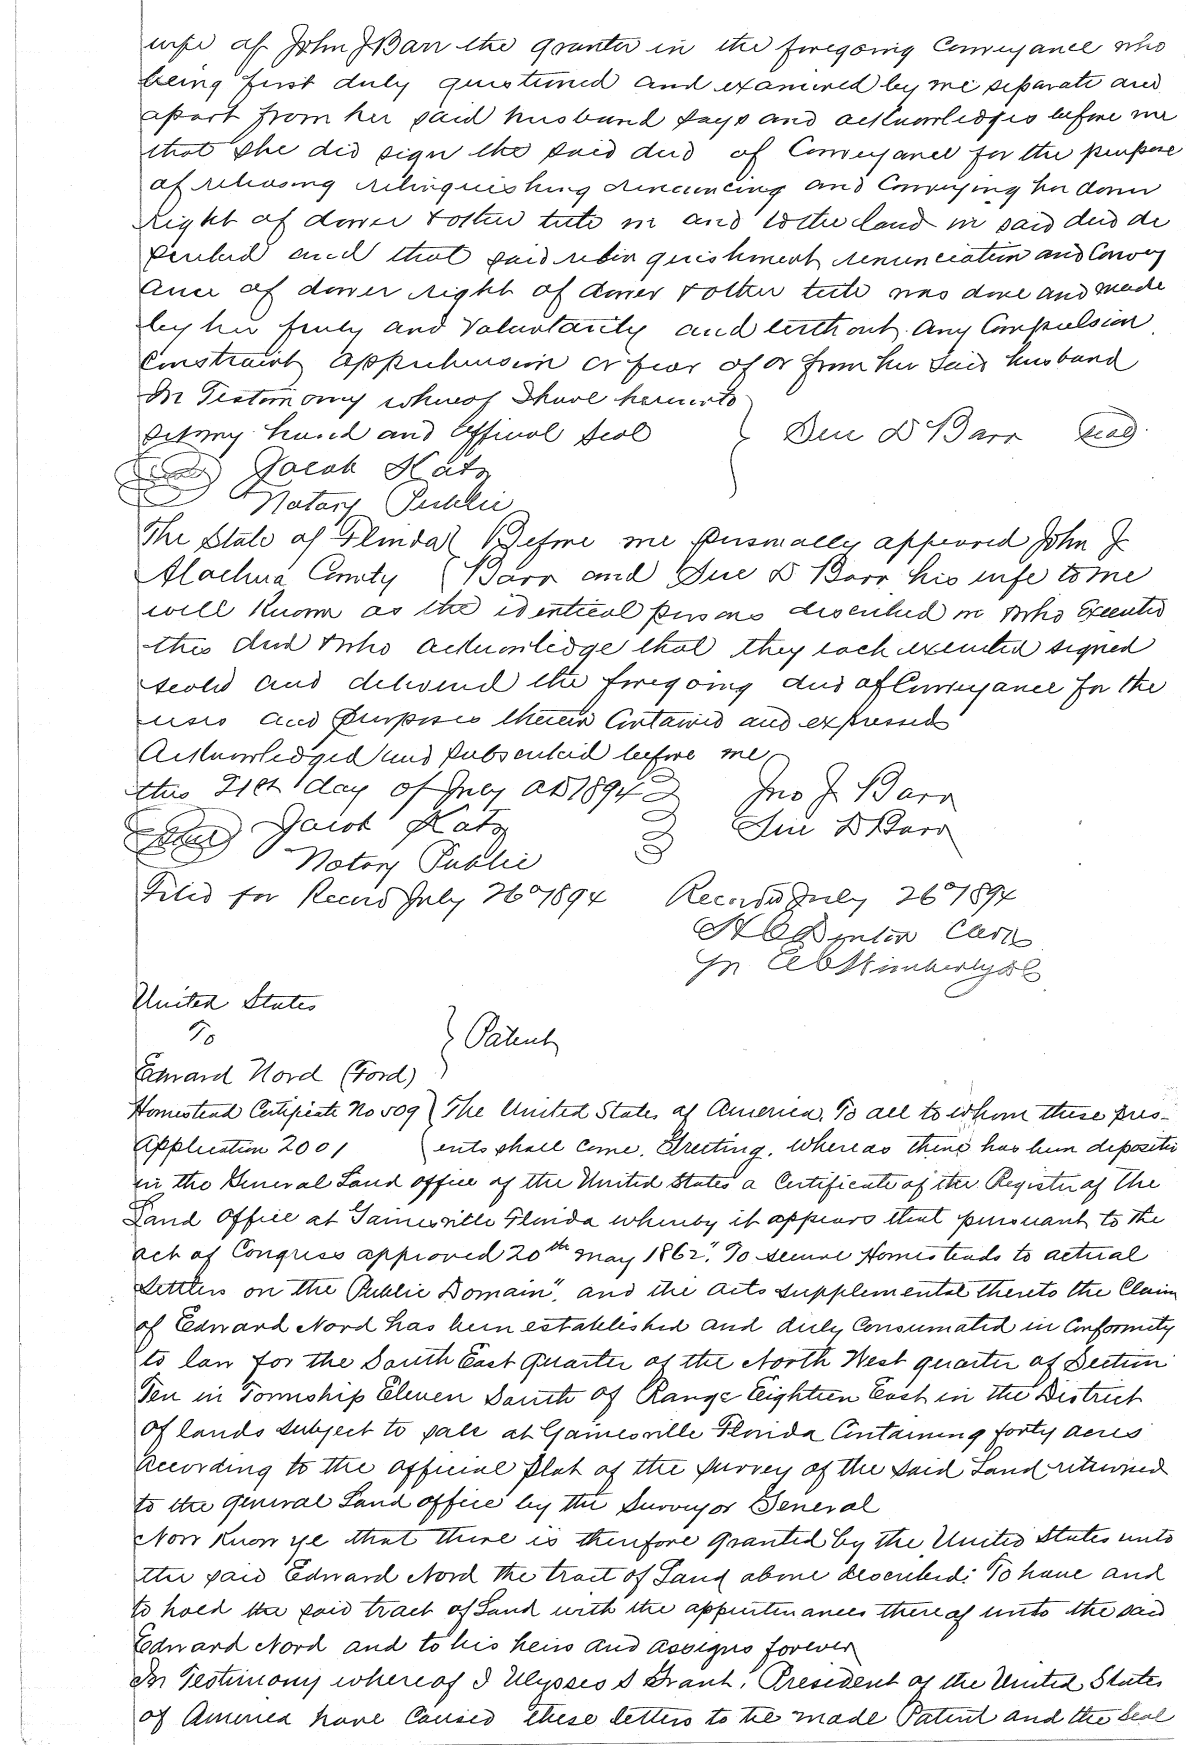 wife of John J Barr the grantor in the foregoing Conveyance who
being first duly questioned and examined by me separate and
apart from her said husband says and acknowledges before me
that she did sign the said deed of Conveyance for the purpose
of releasing relinquishing renouncing and Conveying her dower
Right of dower & other title in and to the land in said deed de
scribed and that said relinquishment renunciation and Convey
ance of dower right of dower & other title was done and made
by her freely and Voluntarily and without any Compulsion
Constraint apprehension or fear of or from her said husband
In Testimony whereof I have hereunto
set my hand and Official Seal } Sue D Barr (seal)
Jacob Katz
Notary Public
The State of Florida { Before me personally appeared John J
Alachua County { Barr and Sue D Barr his wife to me
well Known as the identical persons described in & who Executed
this deed & who acknowledge that they each executed signed
sealed and delivered the foregoing deed of Conveyance for the
uses and purposes therein Contained and expressed
Acknowledged and subscribed before me
this 21st day of July AD 1894 Jno J Barr
(seal) Jacob Katz Sue D Barr
Notary Public
Filed for Record July 26" 1894 Recorded July 26" 1894
H C Denton Clerk
Wimberly DC
United States
To } Patent
Edward Nord (Ford)
Homestead Certificate No 509 { The United States of America, To all to whom these pres-
Application 2001 { ents shall come, Greeting. Whereas there has been deposited
in the General Land office of the United States a Certificate of the Register of the
Land Office at Gainesville Florida whereby it appears that pursuant to the
act of Congress approved 20th May 1862, "To secure Homesteads to actual
Settlers on the Public Domain", and the acts supplemental thereto the Claim
of Edward Nord has been established and duly Consumated in Conformity
to law for the South East Quarter of the North West quarter of Section
Ten in Township Eleven South of Range Eighteen East in the District
of lands subject to sale at Gainesville Florida Containing forty acres
According to the official Plat of the survey of the said Land returned
to the general Land office by the Surveyor General
Now Know ye that there is therefore granted by the United States unto
the said Edward Nord the tract of Land above described: To have and
to hold the said tract of Land with the appurtenances thereof unto the said
Edward Nord and to his heirs and assigns forever
In Testimony whereof I Ulysses S Grant, President of the United States
of America have Caused these letters to be made Patent and the Seal